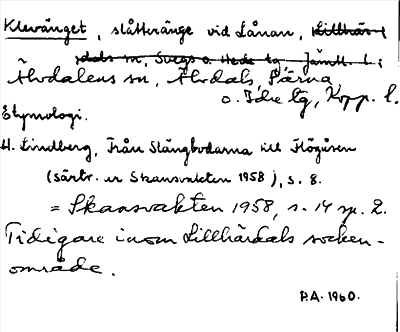 Klevänget, slåtteränge vid Lånan, Lillhär-
dals sn, Svegs o. Hede tg, Jämtl. l.;
Älvdalens sn, Älvdals, Särna
o. Idre tg, Kopp. l.
Etymologi.
H. Lindberg, Från Slängbodarna till Högåsen
(särtr. ur Skansvakten 1958), s. 8.
= Skansvakten 1958, s. 14 sp. 2.
Tidigare inom Lillhärdals socken-
område.
P.A. 1960.